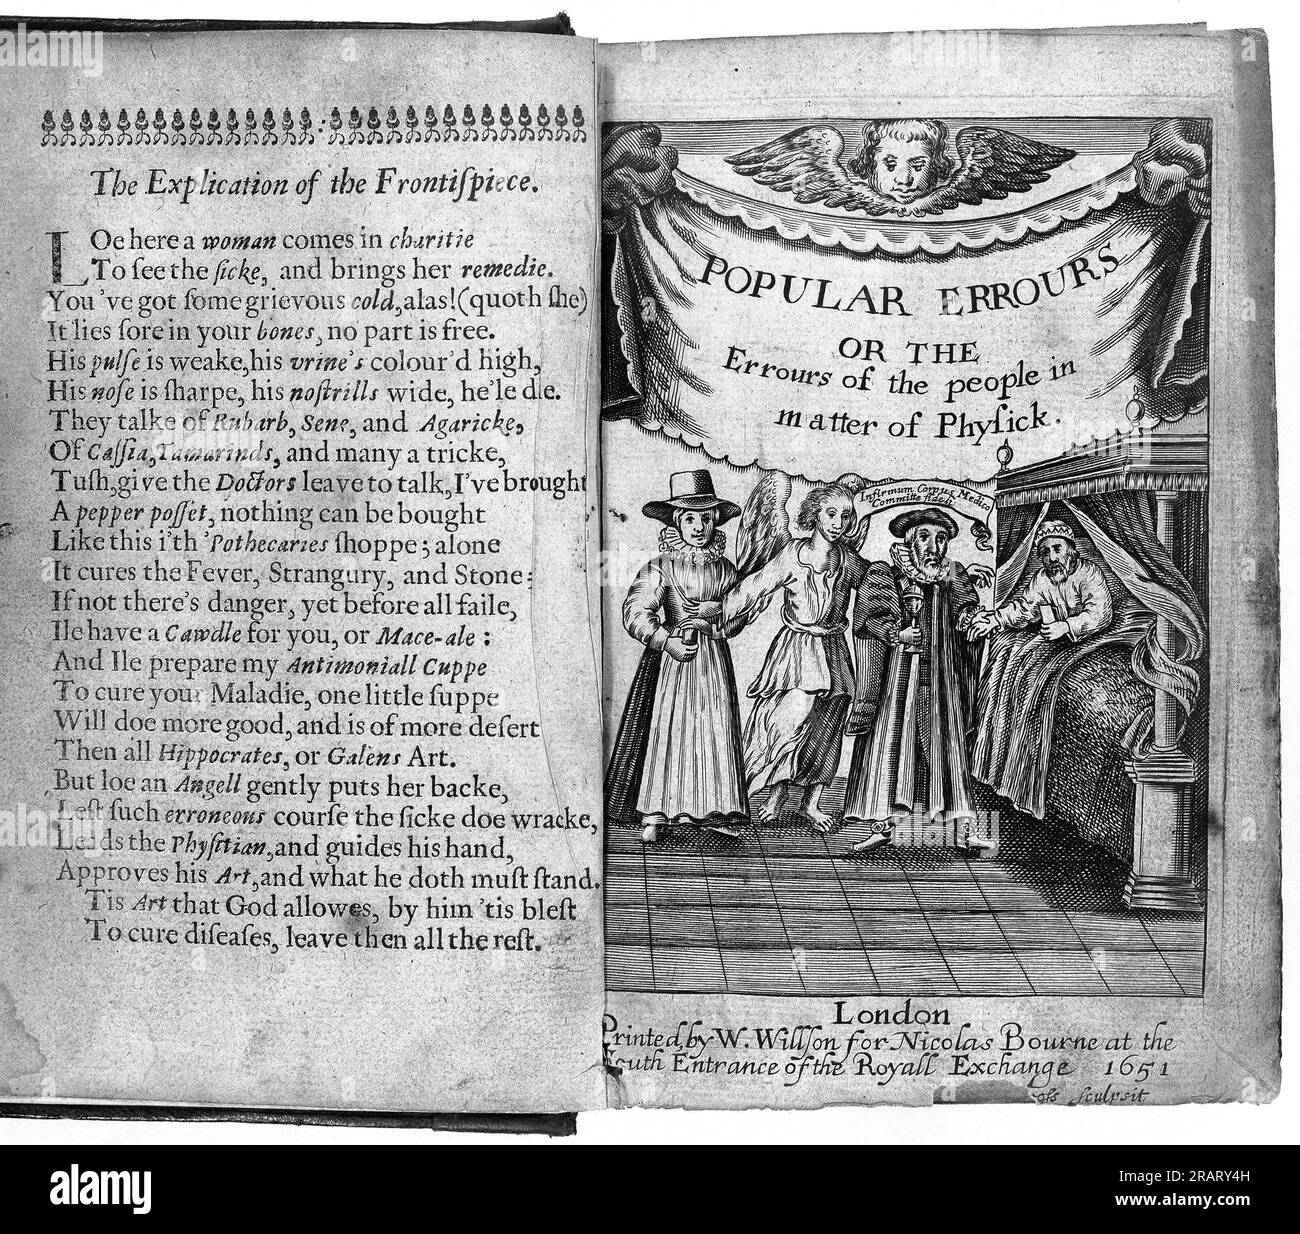 The Explication of the Frontiſpiece.
LOe here a woman comes in charitie
To ſee the ſicke, and brings her remedie.
You 've got ſome grievous cold, alas! (quoth ſhe)
It lies ſore in your bones, no part is free.
His pulſe is weake, his vrine's colour'd high,
His noſe is ſharpe, his noſtrills wide, he'le die.
They talke of Rubarb, Sene, and Agaricke,
Of Caſſia, Tamarinds, and many a tricke,
Tuſh, give the Doctors leave to talk, I've brought
A pepper poſſet, nothing can be bought
Like this i'th 'Pothecaries ſhoppe; alone
It cures the Fever, Strangury, and Stone:
If not there's danger, yet before all faile,
Ile have a Cawdle for you, or Mace-ale:
And Ile prepare my Antimoniall Cuppe
To cure your Maladie, one little ſuppe
Will doe more good, and is of more deſert
Then all Hippocrates, or Galens Art.
But loe an Angell gently puts her backe,
Leſt ſuch erroneous courſe the ſicke doe wracke,
Leads the Phyſitian, and guides his hand,
Approves his Art, and what he doth muſt ſtand.
Tis Art that God allowes, by him 'tis bleſt
To cure diſeaſes, leave then all the reſt.
POPULAR ERROURS
OR THE
Errours of the people in
matter of Phyſick.
Infirmum Corpus Medico
Committe fideli
London
Printed by W. Willſon for Nicolas Bourne at the
South Entrance of the Royall Exchange 1651
ſculpſit
alamy
Image ID: 2RARY4H
www.alamy.com